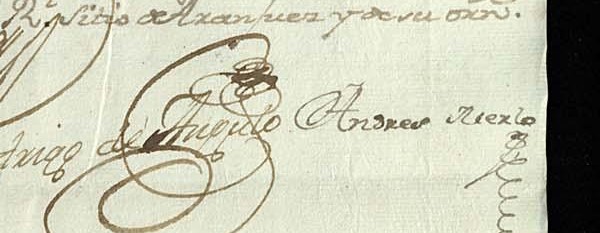 Rl. sitio de Aranjuez y de su orn.
drigo de Angulo Andres Nierlo